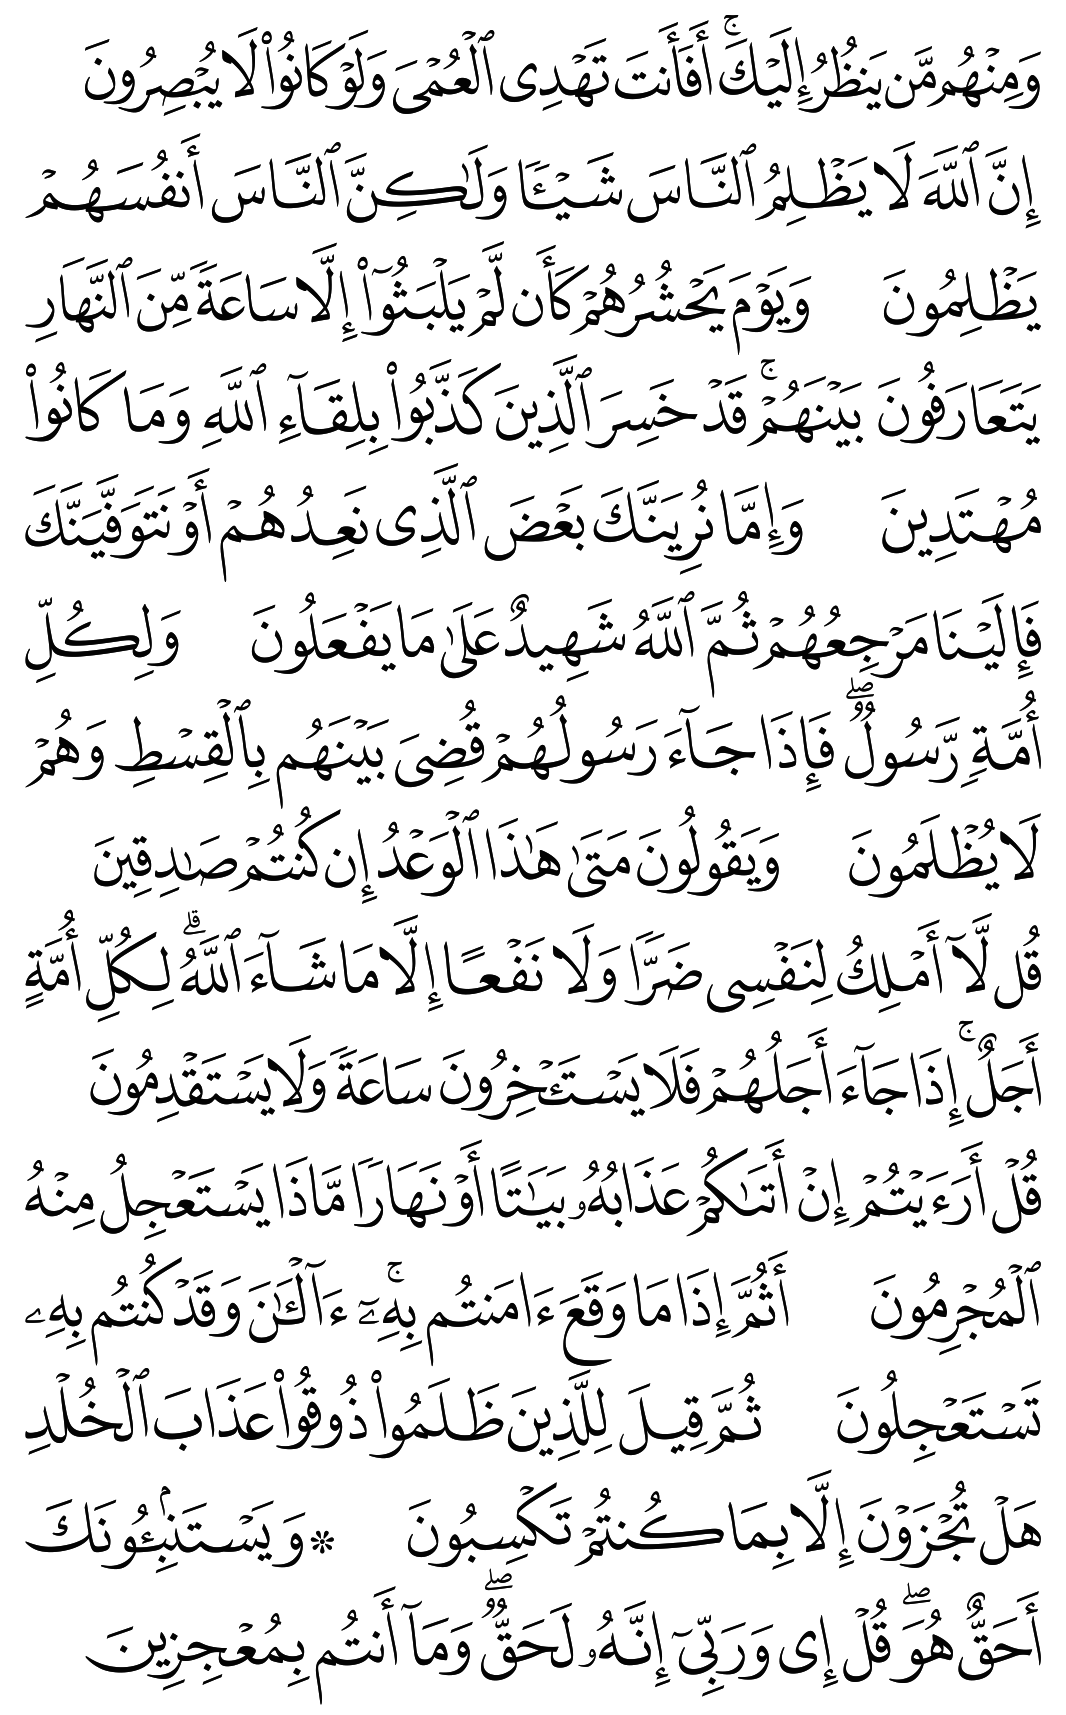 وَمِنْهُم مَّن يَنظُرُ إِلَيْكَ ۚ أَفَأَنتَ تَهْدِى ٱلْعُمْىَ وَلَوْ كَانُوا۟ لَا يُبْصِرُونَ
إِنَّ ٱللَّهَ لَا يَظْلِمُ ٱلنَّاسَ شَيْـًٔا وَلَـٰكِنَّ ٱلنَّاسَ أَنفُسَهُمْ
يَظْلِمُونَ وَيَوْمَ يَحْشُرُهُمْ كَأَن لَّمْ يَلْبَثُوٓا۟ إِلَّا سَاعَةً مِّنَ ٱلنَّهَارِ
يَتَعَارَفُونَ بَيْنَهُمْ ۚ قَدْ خَسِرَ ٱلَّذِينَ كَذَّبُوا۟ بِلِقَآءِ ٱللَّهِ وَمَا كَانُوا۟
مُهْتَدِينَ وَإِمَّا نُرِيَنَّكَ بَعْضَ ٱلَّذِى نَعِدُهُمْ أَوْ نَتَوَفَّيَنَّكَ
فَإِلَيْنَا مَرْجِعُهُمْ ثُمَّ ٱللَّهُ شَهِيدٌ عَلَىٰ مَا يَفْعَلُونَ وَلِكُلِّ
أُمَّةٍ رَّسُولٌ ۖ فَإِذَا جَآءَ رَسُولُهُمْ قُضِىَ بَيْنَهُم بِٱلْقِسْطِ وَهُمْ
لَا يُظْلَمُونَ وَيَقُولُونَ مَتَىٰ هَـٰذَا ٱلْوَعْدُ إِن كُنتُمْ صَـٰدِقِينَ
قُل لَّآ أَمْلِكُ لِنَفْسِى ضَرًّا وَلَا نَفْعًا إِلَّا مَا شَآءَ ٱللَّهُ ۗ لِكُلِّ أُمَّةٍ
أَجَلٌ ۚ إِذَا جَآءَ أَجَلُهُمْ فَلَا يَسْتَـْٔخِرُونَ سَاعَةً وَلَا يَسْتَقْدِمُونَ
قُلْ أَرَءَيْتُمْ إِنْ أَتَىٰكُمْ عَذَابُهُۥ بَيَـٰتًا أَوْ نَهَارًا مَّاذَا يَسْتَعْجِلُ مِنْهُ
ٱلْمُجْرِمُونَ أَثُمَّ إِذَا مَا وَقَعَ ءَامَنتُم بِهِۦٓ ۚ ءَآلْـَٔـٰنَ وَقَدْ كُنتُم بِهِۦ
تَسْتَعْجِلُونَ ثُمَّ قِيلَ لِلَّذِينَ ظَلَمُوا۟ ذُوقُوا۟ عَذَابَ ٱلْخُلْدِ
هَلْ تُجْزَوْنَ إِلَّا بِمَا كُنتُمْ تَكْسِبُونَ * وَيَسْتَنۢبِـُٔونَكَ
أَحَقٌّ هُوَ ۖ قُلْ إِى وَرَبِّىٓ إِنَّهُۥ لَحَقٌّ ۖ وَمَآ أَنتُم بِمُعْجِزِينَ